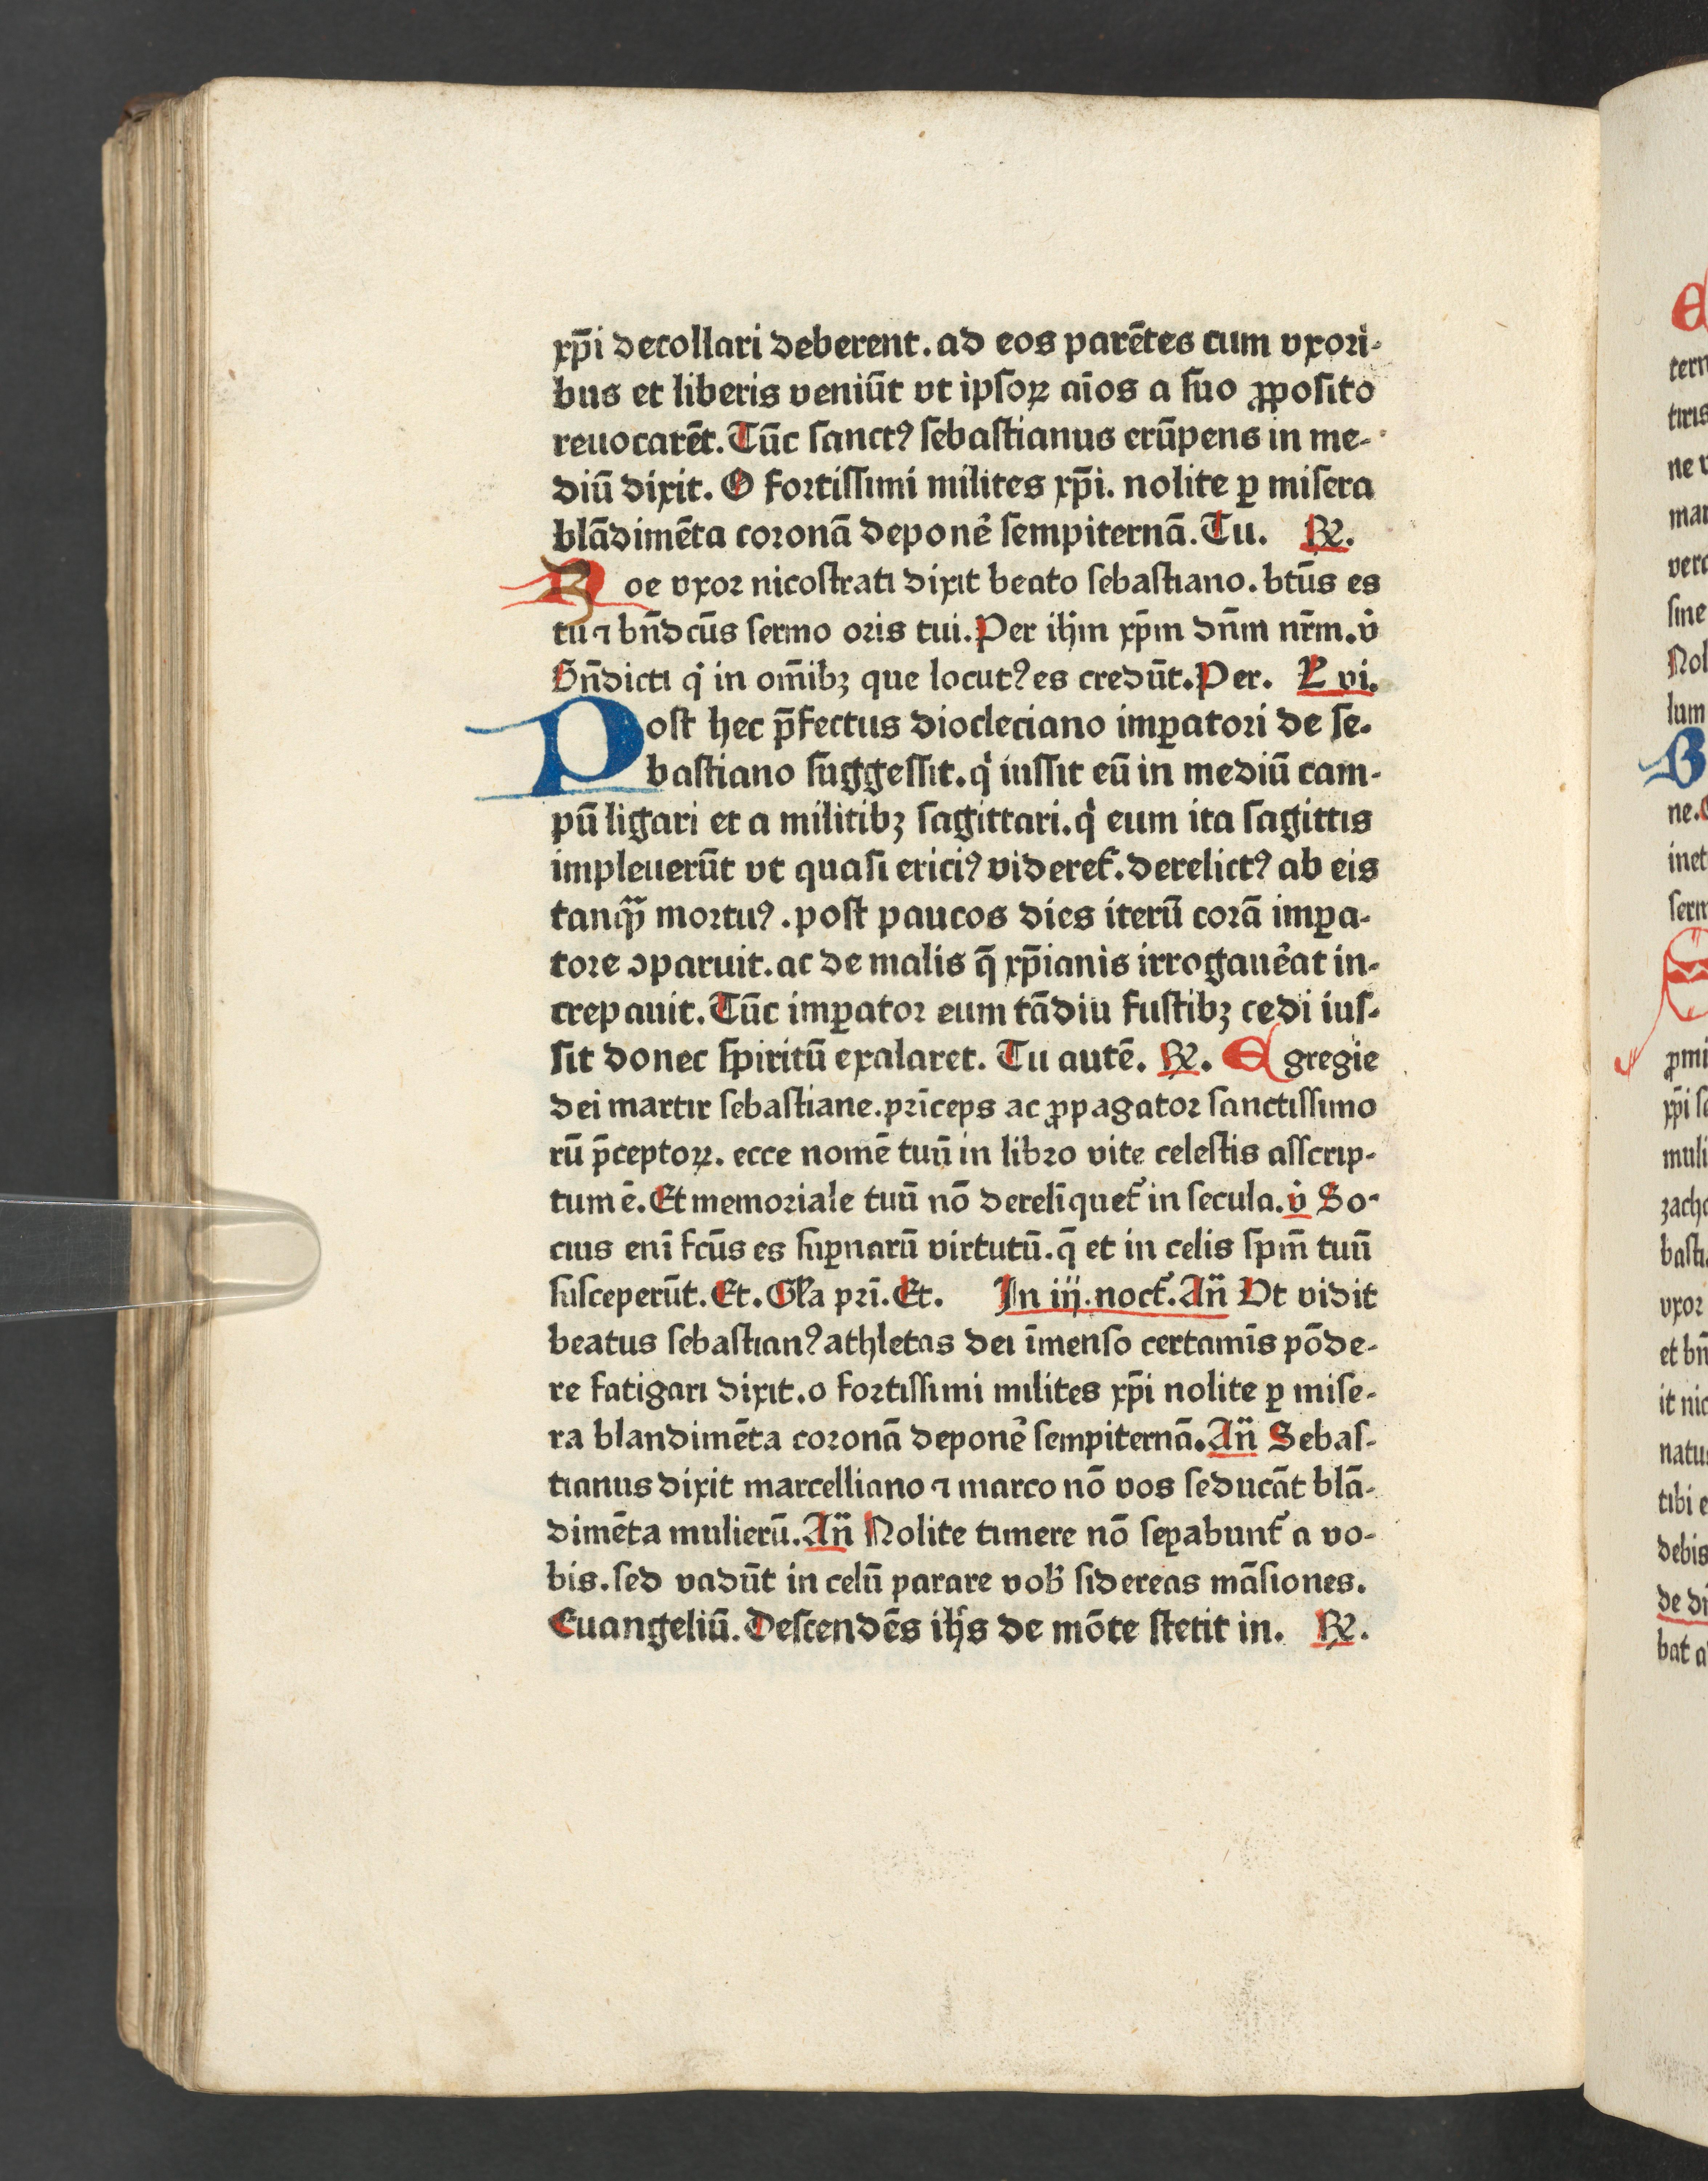 xp̄i decollari deberent. ad eos parētes cum vxori-
bus et liberis veniūt vt ipsoꝝ aīos a suo ꝓposito
reuocarēt. Tūc sanctꝰ sebastianus erūpens in me-
diū dixit. O fortissimi milites xp̄i. nolite ꝑ misera
blādimēta coronā deponē sempiternā. Tu. ℟.
oe vxor nicostrati dixit beato sebastiano. btūs es
tu ⁊ bn̄dcūs sermo oris tui. Per ihm xp̄m dn̄m nr̄m. v̇
Bn̄dicti qͥ in om̄ibꝫ que locutꝰ es credūt. Per. L vi.
Post hec p̄fectus diocleciano imꝑatori de se-
bastiano suggessit. qͥ iussit eū in mediū cam-
pū ligari et a militibꝫ sagittari. qͥ eum ita sagittis
impleuerūt vt quasi ericiꝰ videret᷑. derelictꝰ ab eis
tanqᷓ mortuꝰ. post paucos dies iterū corā imꝑa-
tore ꝯparuit. ac de malis q̄ xp̄ianis irrogauēat in-
crepauit. Tūc imꝑator eum tādiu fustibꝫ cedi ius-
sit donec spiritū exalaret. Tu autē. ℟. Egregie
dei martir sebastiane. prīceps ac ꝓpagator sanctissimo
rū p̄ceptoꝝ. ecce nomē tuū in libro vite celestis asscrip-
tum ē. Et memoriale tuū nō derelīquet᷑ in secula. v̇ So-
cius enī fcūs es suꝑnarū virtutū. q̄ et in celis spm̄ tuū
susceperūt. Et. Gl̄a pr̄i. Et. In iij. noct᷑. An̄ Vt vidit
beatus sebastianꝰ athletas dei īmenso certamīs pōde-
re fatigari dixit. o fortissimi milites xp̄i nolite ꝑ mise-
ra blandimēta coronā deponē sempiternā. An̄ Sebas-
tianus dixit marcelliano ⁊ marco nō vos seducāt blā-
dimēta mulierū. An̄ Nolite timere nō seꝑabunt᷑ a vo-
bis. sed vadūt in celū parare vob̄ sidereas māsiones.
Euangeliū. Descendēs ihs̄ de mōte stetit in. ℟.